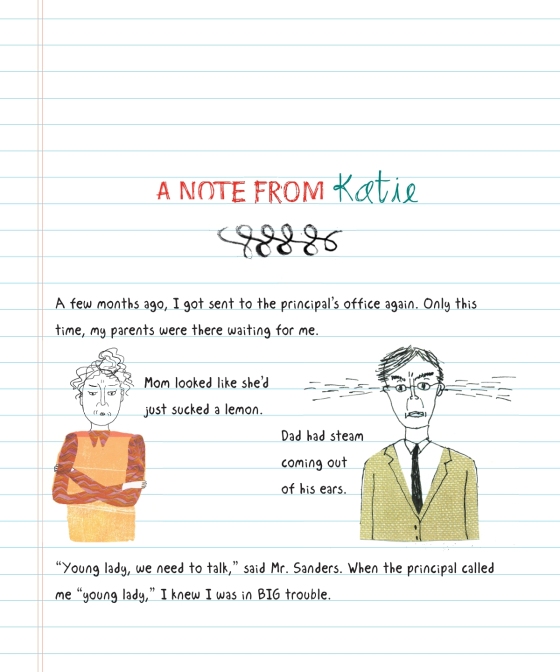 A NOTE FROM Katie
A few months ago, I got sent to the principal's office again. Only this
time, my parents were there waiting for me.
Mom looked like she'd
just sucked a lemon.
Dad had steam
coming out
of his ears.
“Young lady, we need to talk,” said Mr. Sanders. When the principal called
me “young lady,” I knew I was in BIG trouble.